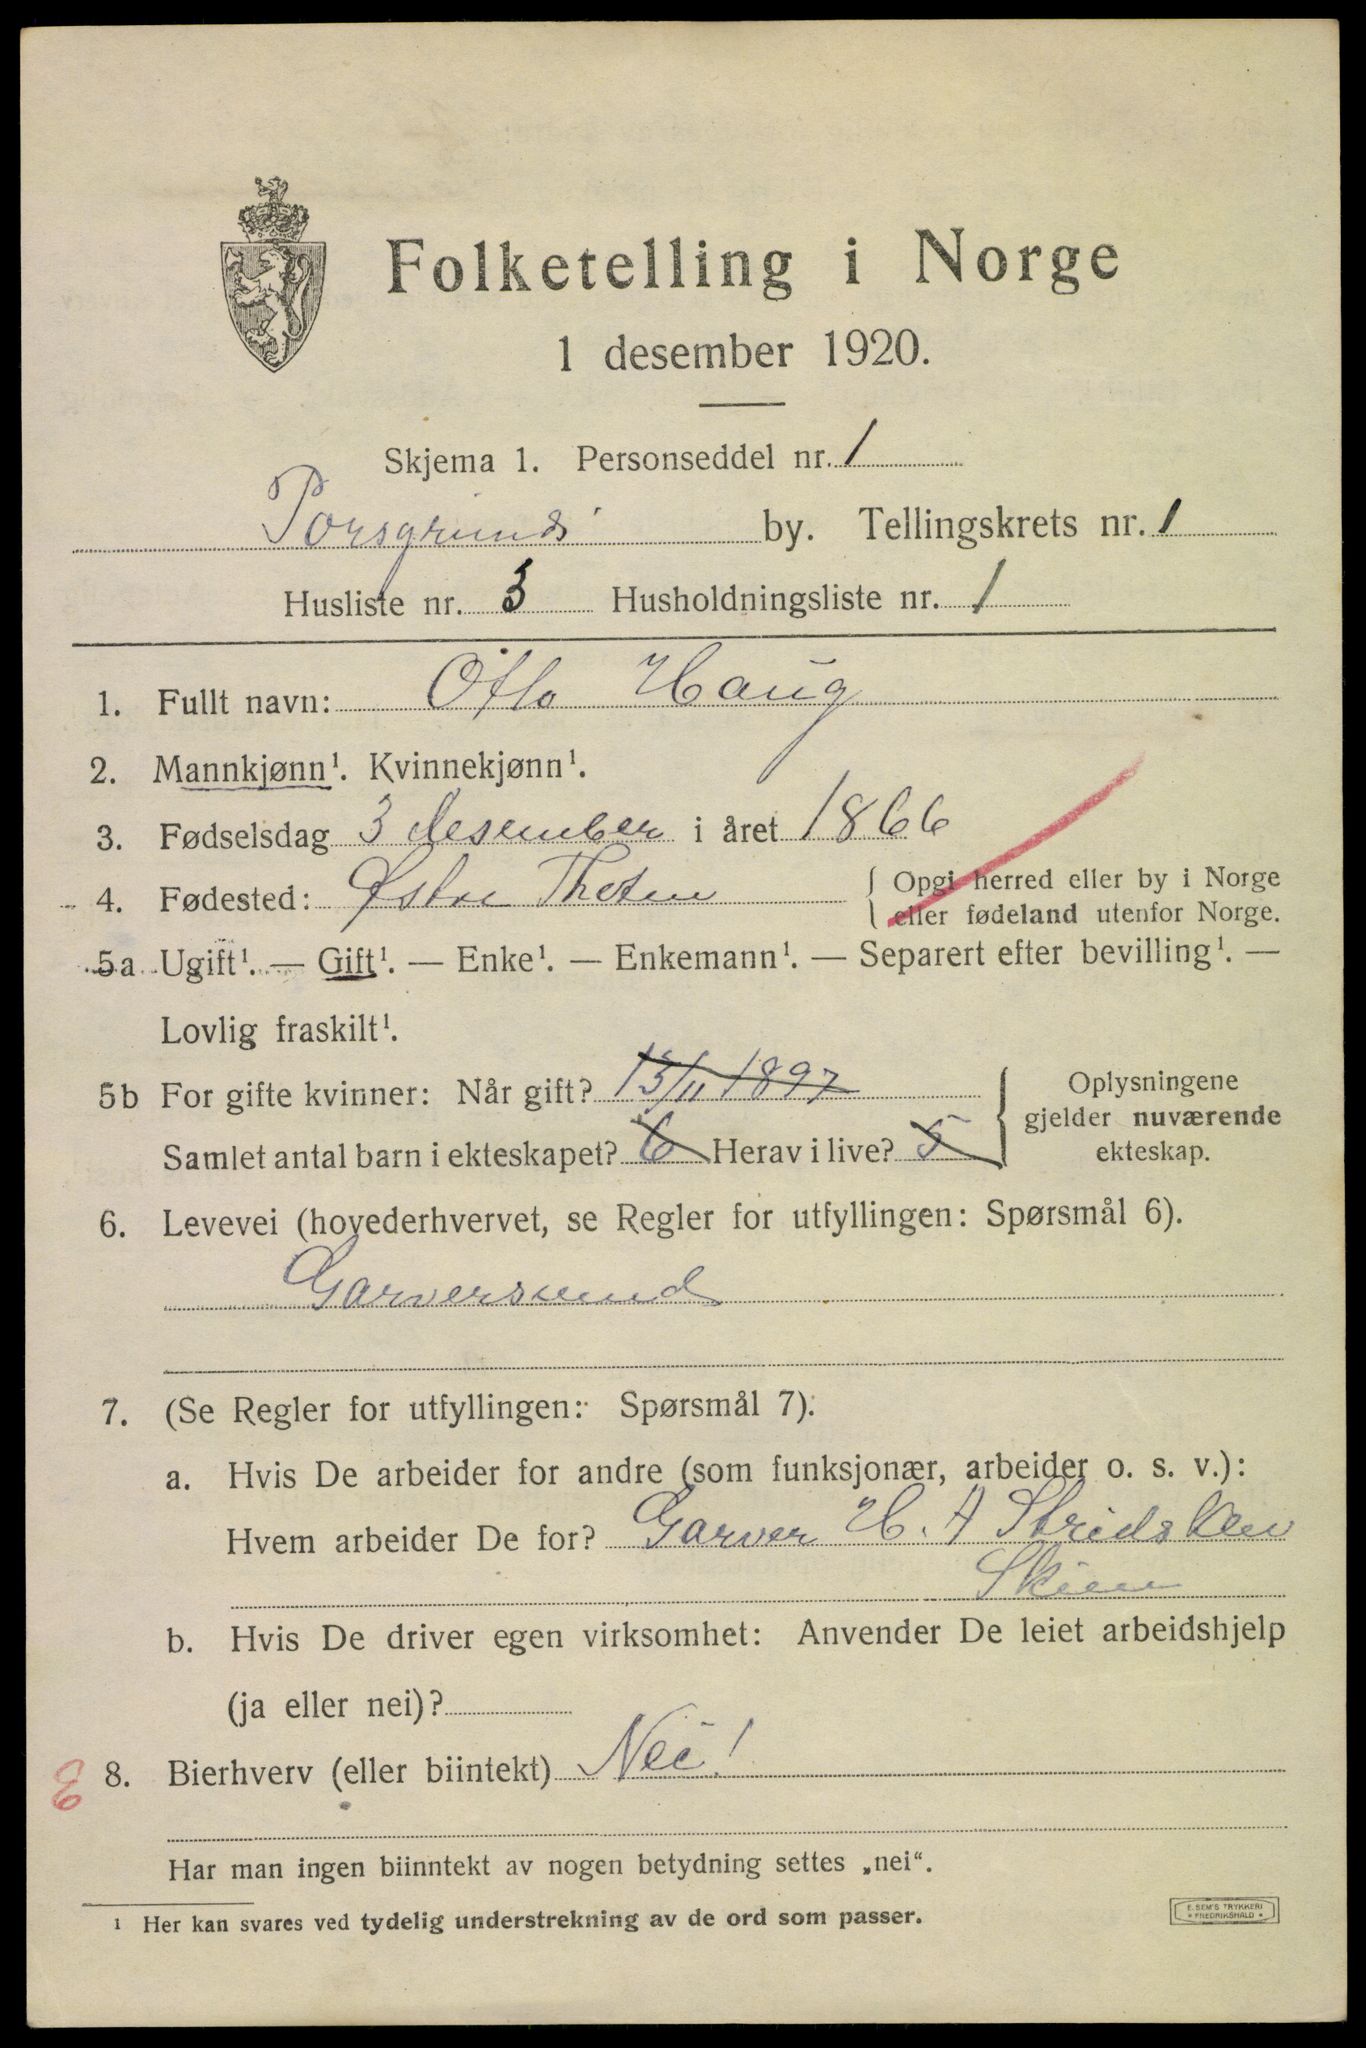 Folketelling i Norge
1 desember 1920.
Skjema 1. Personseddel nr. 1
Porsgrund by. Tellingskrets nr. 1
Husliste nr. 3 Husholdningsliste nr. 1
1. Fullt navn: Otto Haug
2. Mannkjønn¹. Kvinnekjønn¹.
3. Fødselsdag 3 desember i året 1866
4. Fødested: Østre Thoten { Opgi herred eller by i Norge
eller fødeland utenfor Norge.
5a Ugift¹. — Gift¹. — Enke¹. — Enkemann¹. — Separert efter bevilling¹. —
Lovlig fraskilt¹.
5b For gifte kvinner: Når gift? 13/11 1897
Samlet antal barn i ekteskapet? 6 Herav i live? 5
{ Oplysningene
gjelder nuværende
ekteskap.
6. Levevei (hovederhvervet, se Regler for utfyllingen: Spørsmål 6).
Garversvend
7. (Se Regler for utfyllingen: Spørsmål 7):
a. Hvis De arbeider for andre (som funksjonær, arbeider o. s. v.):
Hvem arbeider De for? Garver H. A Stridsklev
Skien
b. Hvis De driver egen virksomhet: Anvender De leiet arbeidshjelp
(ja eller nei)?
8. Bierhverv (eller biintekt) Nei!
Har man ingen biinntekt av nogen betydning settes „nei“.
¹ Her kan svares ved tydelig understrekning av de ord som passer.
E. SEM'S TRYKKERI
FREDRIKSHALD